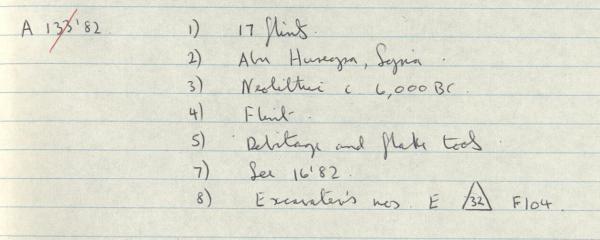 A 133'82 1) 17 flints.
2) Abu Hureyra, Syria.
3) Neolithic c 6,000 BC.
4) Flint.
5) Debitage and flake tools
7) See 16'82.
8) Excavator's nos. E 32 F104.